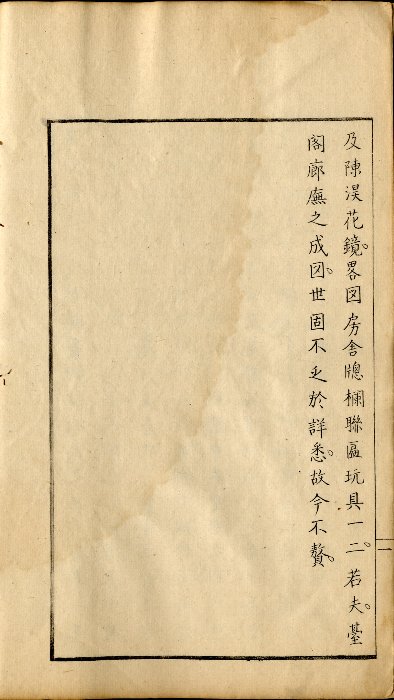 及陳淏花鏡。畧図房舎牕欄聯匾玩具一二。若夫臺
閣廊廡之成図。世固不乏於詳悉。故今不贅。
二